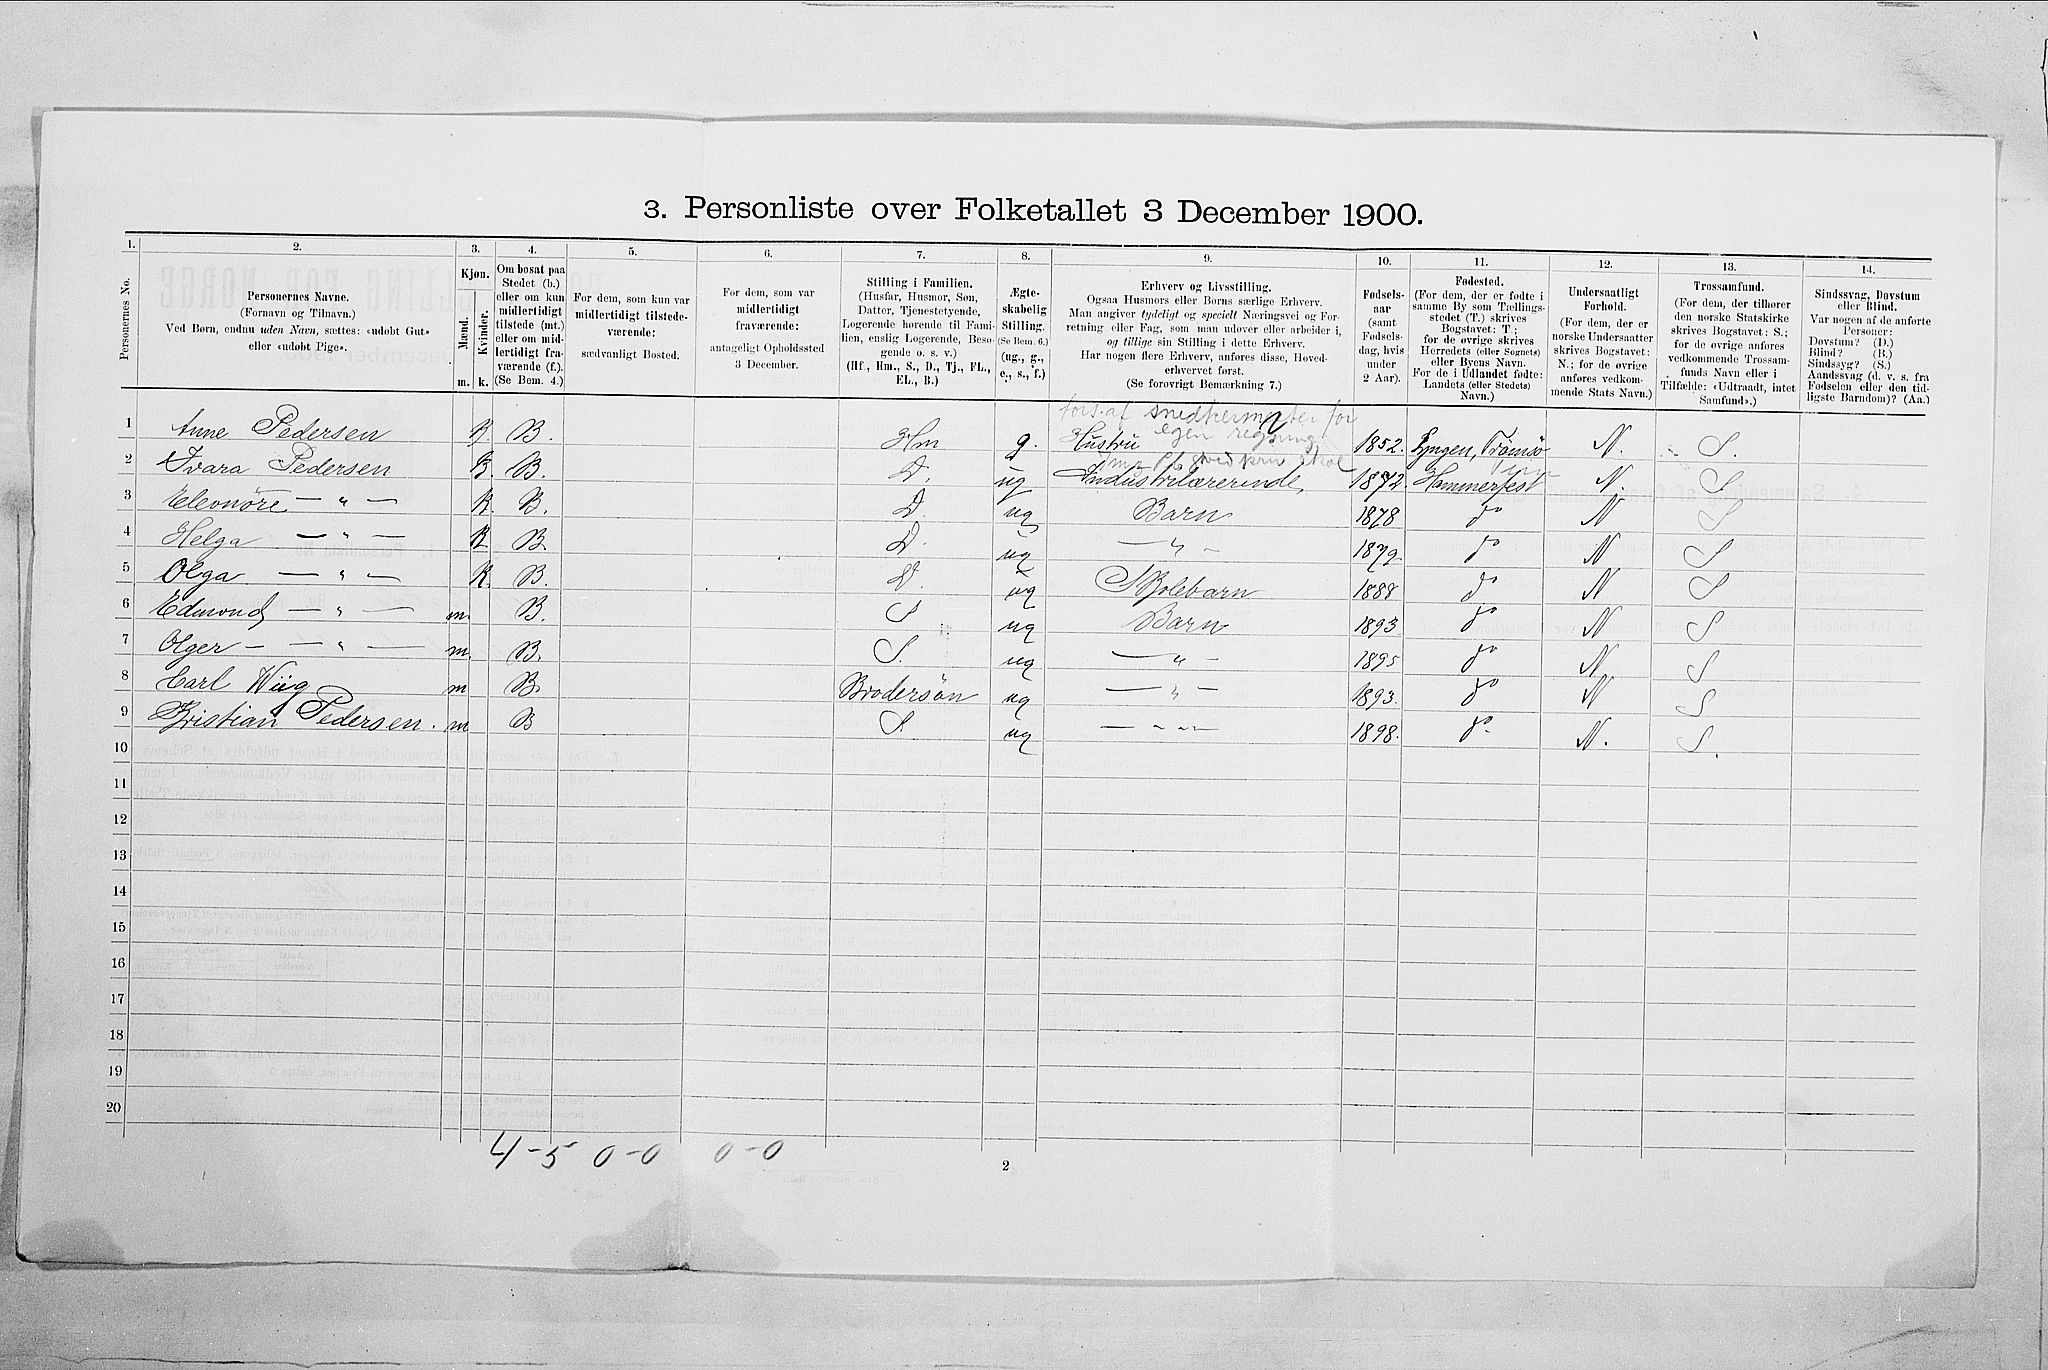 3. Personliste over Folketallet 3 December 1900.
1. 2. 3. 4. 5. 6. 7. 8. 9. 10. 11. 12. 13. 14.
Personernes No.
Personernes Navne.
(Fornavn og Tilnavn.)
Ved Børn, endnu uden Navn, sættes: «udøbt Gut»
eller «udøbt Pige».
Kjøn.
Mænd.
Kvinder.
m. k.
Om bosat paa
Stedet (b.)
eller om kun
midlertidigt
tilstede (mt.)
eller om mid-
lertidigt fra-
værende (f.).
(Se Bem. 4.)
For dem, som kun var
midlertidigt tilstede-
værende:
sædvanligt Bosted.
For dem, som var
midlertidigt
fraværende:
antageligt Opholdssted
3 December.
Stilling i Familien.
(Husfar, Husmor, Søn,
Datter, Tjenestetyende,
Logerende hørende til Fami-
lien, enslig Logerende, Besø-
gende o. s. v.)
(Hf., Hm., S., D., Tj., FL.,
EL., B.)
Ægte-
skabelig
Stilling.
(Se Bem. 6.)
(ug., g.,
e., s., f.)
Erhverv og Livsstilling.
Ogsaa Husmors eller Børns særlige Erhverv.
Man angiver tydeligt og specielt Næringsvei og For-
retning eller Fag, som man udøver eller arbeider i,
og tillige sin Stilling i dette Erhverv.
Har nogen flere Erhverv, anføres disse, Hoved-
erhvervet først.
(Se forøvrigt Bemærkning 7.)
Fødsels-
aar
(samt
Fødsels-
dag, hvis
under
2 Aar).
Fødested.
(For dem, der er fødte i
samme By som Tællings-
stedet (T.) skrives
Bogstavet: T;
for de øvrige skrives
Herredets (eller Sognets)
eller Byens Navn.
For de i Udlandet fødte:
Landets (eller Stedets)
Navn.)
Undersaatligt
Forhold.
(For dem, der er
norske Undersaatter
skrives Bogstavet:
N.; for de øvrige
anføres vedkom-
mende Stats Navn.)
Trossamfund.
(For dem, der tilhører
den norske Statskirke
skrives Bogstavet: S.;
for de øvrige anføres
vedkommende Trossam-
funds Navn eller i
Tilfælde: «Udtraadt, intet
Samfund».)
Sindssvag, Døvstum
eller Blind.
Var nogen af de anførte
Personer:
Døvstum? (D.)
Blind? (B.)
Sindssyg? (S.)
Aandssvag (d. v. s. fra
Fødselen eller den tid-
ligste Barndom)? (Aa.)
fors. af snedkermester for
egen regning
1 Anne Pedersen K. B. Hm g. Hustru 1852. Lyngen, Tromsø N. S.
2 Ivara Pedersen K. B. D. ug Industrilærerinde, 1872. Hammerfest N. S
3 Eleonöre — „ — K. B. D. ug Barn 1878 do N S
4 Helga — „ — K B. D. ug — „ — 1879. do N S
5 Olga — „ — K. B. D. ug Skolebarn 1888 do N S
6 Edmond — „ — m. B. S ug Barn 1893 do N S
7 Olger — „ — m. B. S. ug — „ — 1895 do N S
8 Carl Wiig m B. Brodersön ug — „ — 1893. do N S
9 Kristian Pedersen. m B S. ug — „ — 1898. do. N. S.
10
11
12
13
14
15
16
17
18
19
20
4-5 0-0 0-0
2